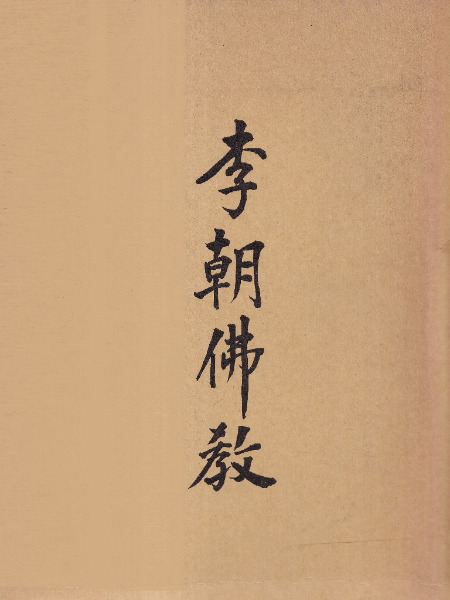 李朝佛教